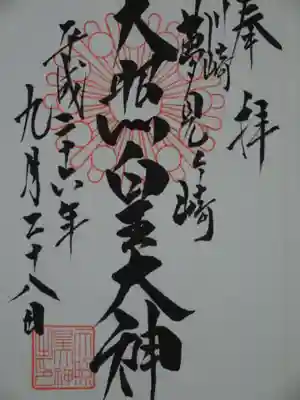 奉拝
川崎
夢見ヶ崎
天照皇大神
平成二十六年
九月二十八日